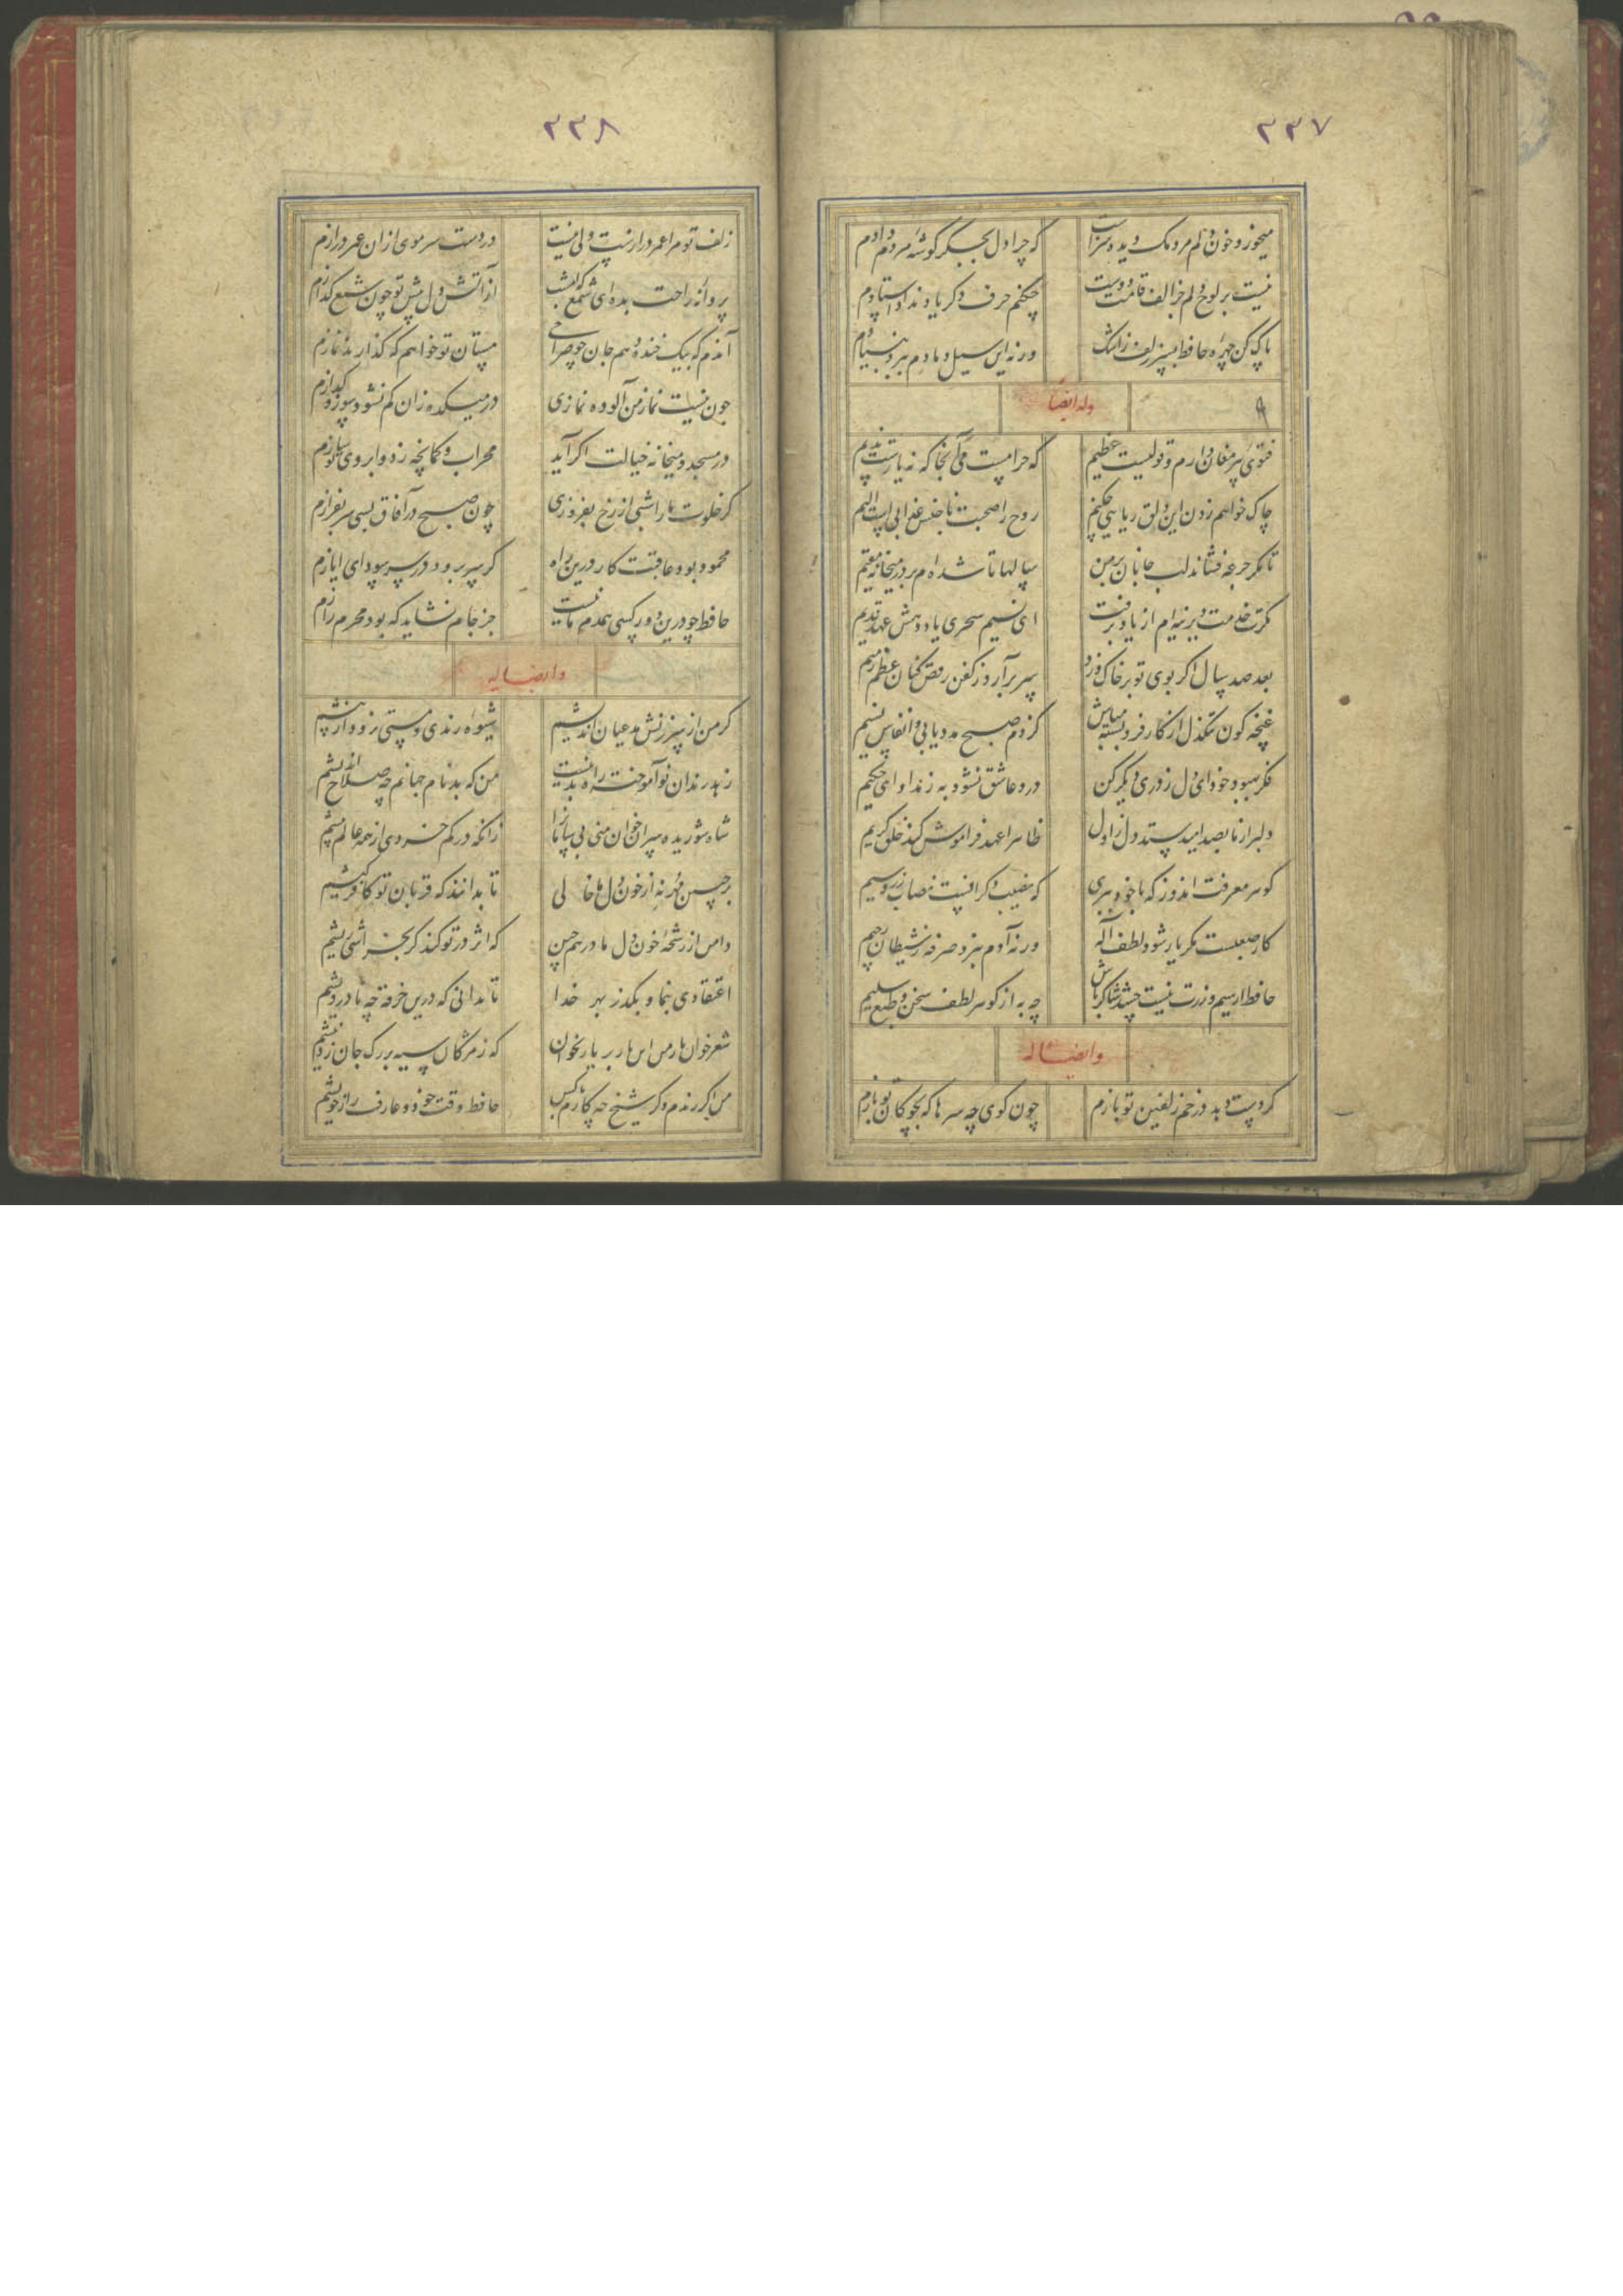 ۳۳۷
میخورد خون دلم مردمک دیده سزاست که چرا دل بجگر گوشهٔ مردم دادم
نیست بر لوح دلم جز الف قامت دوست چکنم حرف دگر یاد نداد استادم
پاک کن چهره حافظ بسر زلف ز اشک ورنه این سیل دمادم ببرد بنیادم
وله ایضاً
فتوی پیر مغان دارم و قولیست عظیم که حرامست می آنجا که نه یارست ندیم
چاک خواهم زدن این دلق ریایی چکنم روح را صحبت ناجنس عذابی است الیم
تا مگر جرعه فشاند لب جانان بر من سالها تا شده ام بر در میخانه مقیم
مگرت خدمت دیرینه ام از یاد برفت ای نسیم سحری یاد دهش عهد قدیم
بعد صد سال اگر بوی تو بر خاک وزد سر برآرد ز کفن رقص کنان عظم رمیم
غنچه گو تنگدل از کار فروبسته مباش کز دم صبح مدد یابی و انفاس نسیم
فکر بهبود خود ای دل ز دری دیگر کن درد عاشق نشود به ز مداوای حکیم
دلبر از ما بصد امید ستد دل ز اول ظاهرا عهد فرامش نکند خلق کریم
گوهر معرفت اندوز که با خود ببری که نصیب دگرانست نصاب زر و سیم
کار صعبست مگر یار شود لطف اله ورنه آدم نبرد صرفه ز شیطان رجیم
حافظ ار سیم و زرت نیست چه شد شاکر باش چه به از گوهر لطف سخن و طبع سلیم
وایضاً له
گر دست دهد در خم زلفین تو بازم چون گوی چه سرها که بچوگان تو بازم
۳۳۸
زلف تو مرا عمر درازست ولی نیست در دست سر مویی از ان عمر درازم
پروانه راحت بده ای شمع که امشب از آتش دل پیش تو چون شمع گدازم
آندم که بیک خنده دهم جان چو صراحی مستان تو خواهم که گذارند نمازم
چون نیست نماز من آلوده نمازی در میکده زان کم نشود سوز و گدازم
در مسجد و میخانه خیالت اگر آید محراب و کمانچه ز دو ابروی تو سازم
گر خلوت ما را شبی از رخ بفروزی چون صبح در آفاق بسی سر بفرازم
محمود بود عاقبت کار درین راه گر سر برود در سر سودای ایازم
حافظ چو درین دور کسی همدم ما نیست جز جام نشاید که بود محرم رازم
وایضاً له
گر من از سرزنش مدعیان اندیشم شیوه رندی و مستی نرود از پیشم
زهد رندان نوآموخته راهی بدیست من که بدنام جهانم چه صلاح اندیشم
شاه شوریده سران خوان من بی سامان را زانکه در کم خردی از همه عالم بیشم
بر جبین مهر نه از خون دل ما خالی تا بدانند که قربان تو کافر کیشم
دامن از رشحه خون دل ما درهم چین که اثر در تو کند گر بخراشی ریشم
اعتقادی بنما و بگذر بهر خدا تا ندانی که درین خرقه چه نادرویشم
شعر خونبار من ای باد بر یار بخوان که ز مژگان سیه بر رگ جان زد نیشم
من اگر رندم و گر شیخ چه کارم با کس حافظ وقت خود و عارف راز خویشم